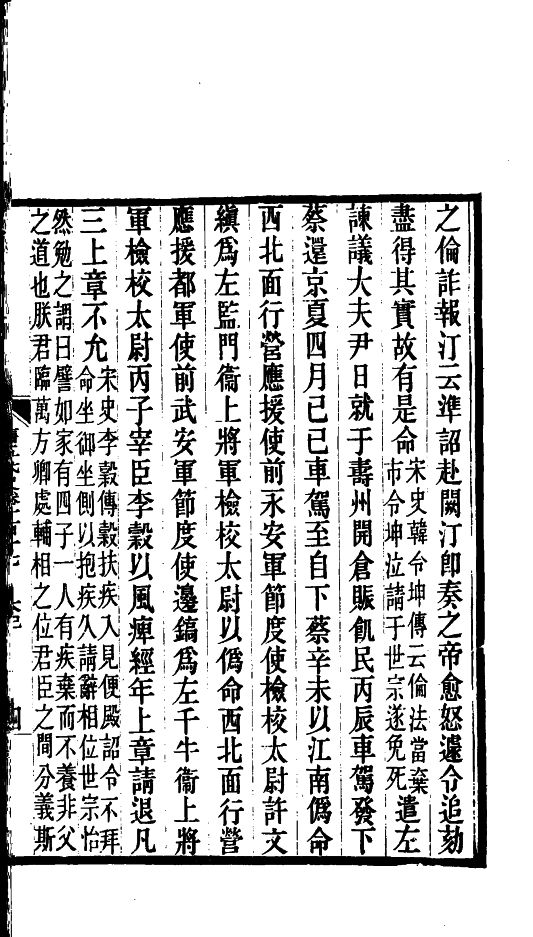 之倫詐報汀云準詔赴闕汀即奏之帝愈怒遽令追劾
盡得其實故有是命宋史韓令坤傳云倫法當棄
市令坤泣請于世宗遂免死遣左
諫議大夫尹日就于壽州開倉賑飢民丙辰車駕發下
蔡還京夏四月己巳車駕至自下蔡辛未以江南僞命
西北面行營應援使前永安軍節度使檢校太尉許文
縝爲左監門衞上將軍檢校太尉以僞命西北面行營
應援都軍使前武安軍節度使邊鎬爲左千牛衞上將
軍檢校太尉丙子宰臣李穀以風痺經年上章請退凡
三上章不允宋史李穀傳穀扶疾入見便殿詔令不拜
命坐御坐側以抱疾久請辭相位世宗怡
然勉之謂曰譬如家有四子一人有疾棄而不養非父
之道也朕君臨萬方卿處輔相之位君臣之間分義斯